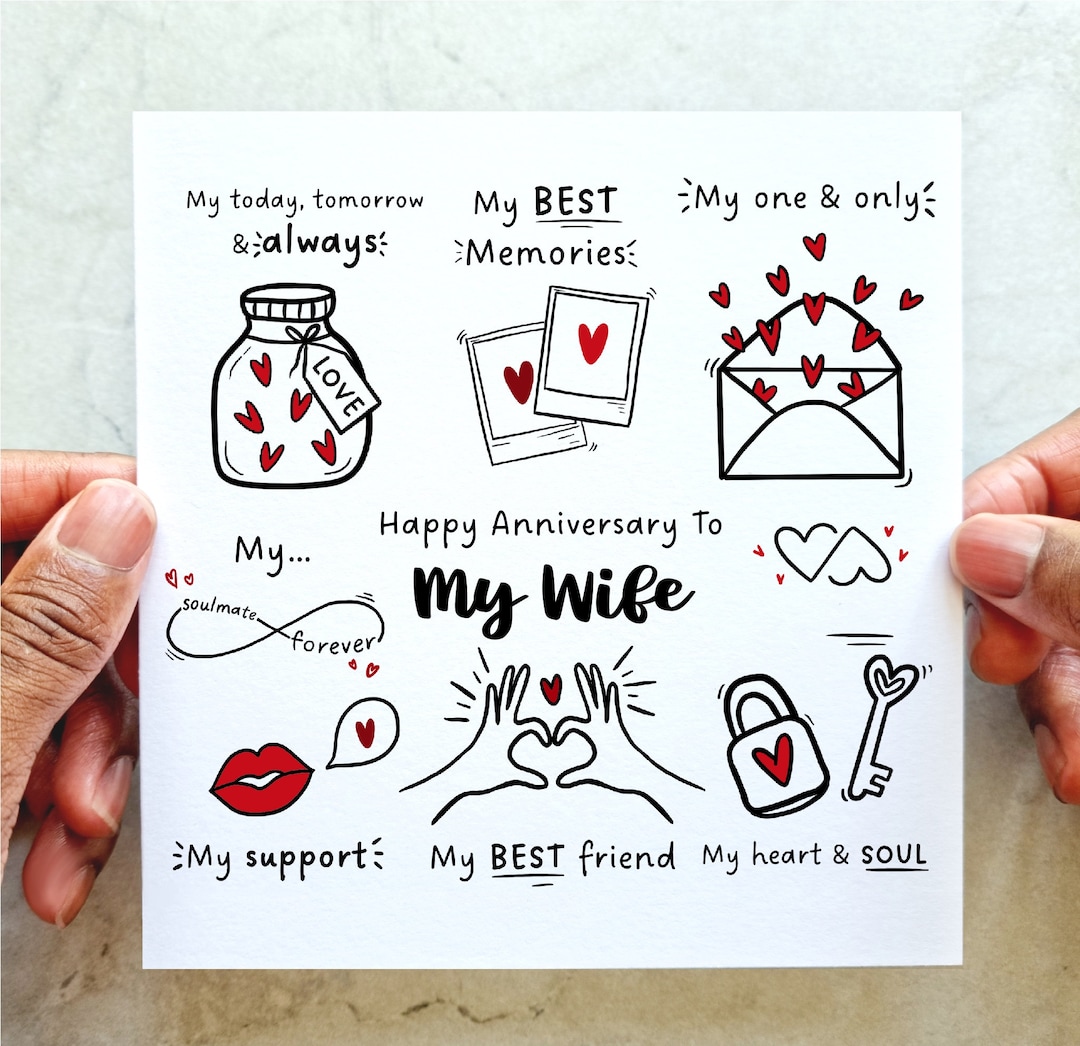 My today, tomorrow
& always
My BEST
Memories
My one & only
LOVE
Happy Anniversary To
My Wife
My...
soulmate
forever
My support
My BEST friend
My heart & SOUL